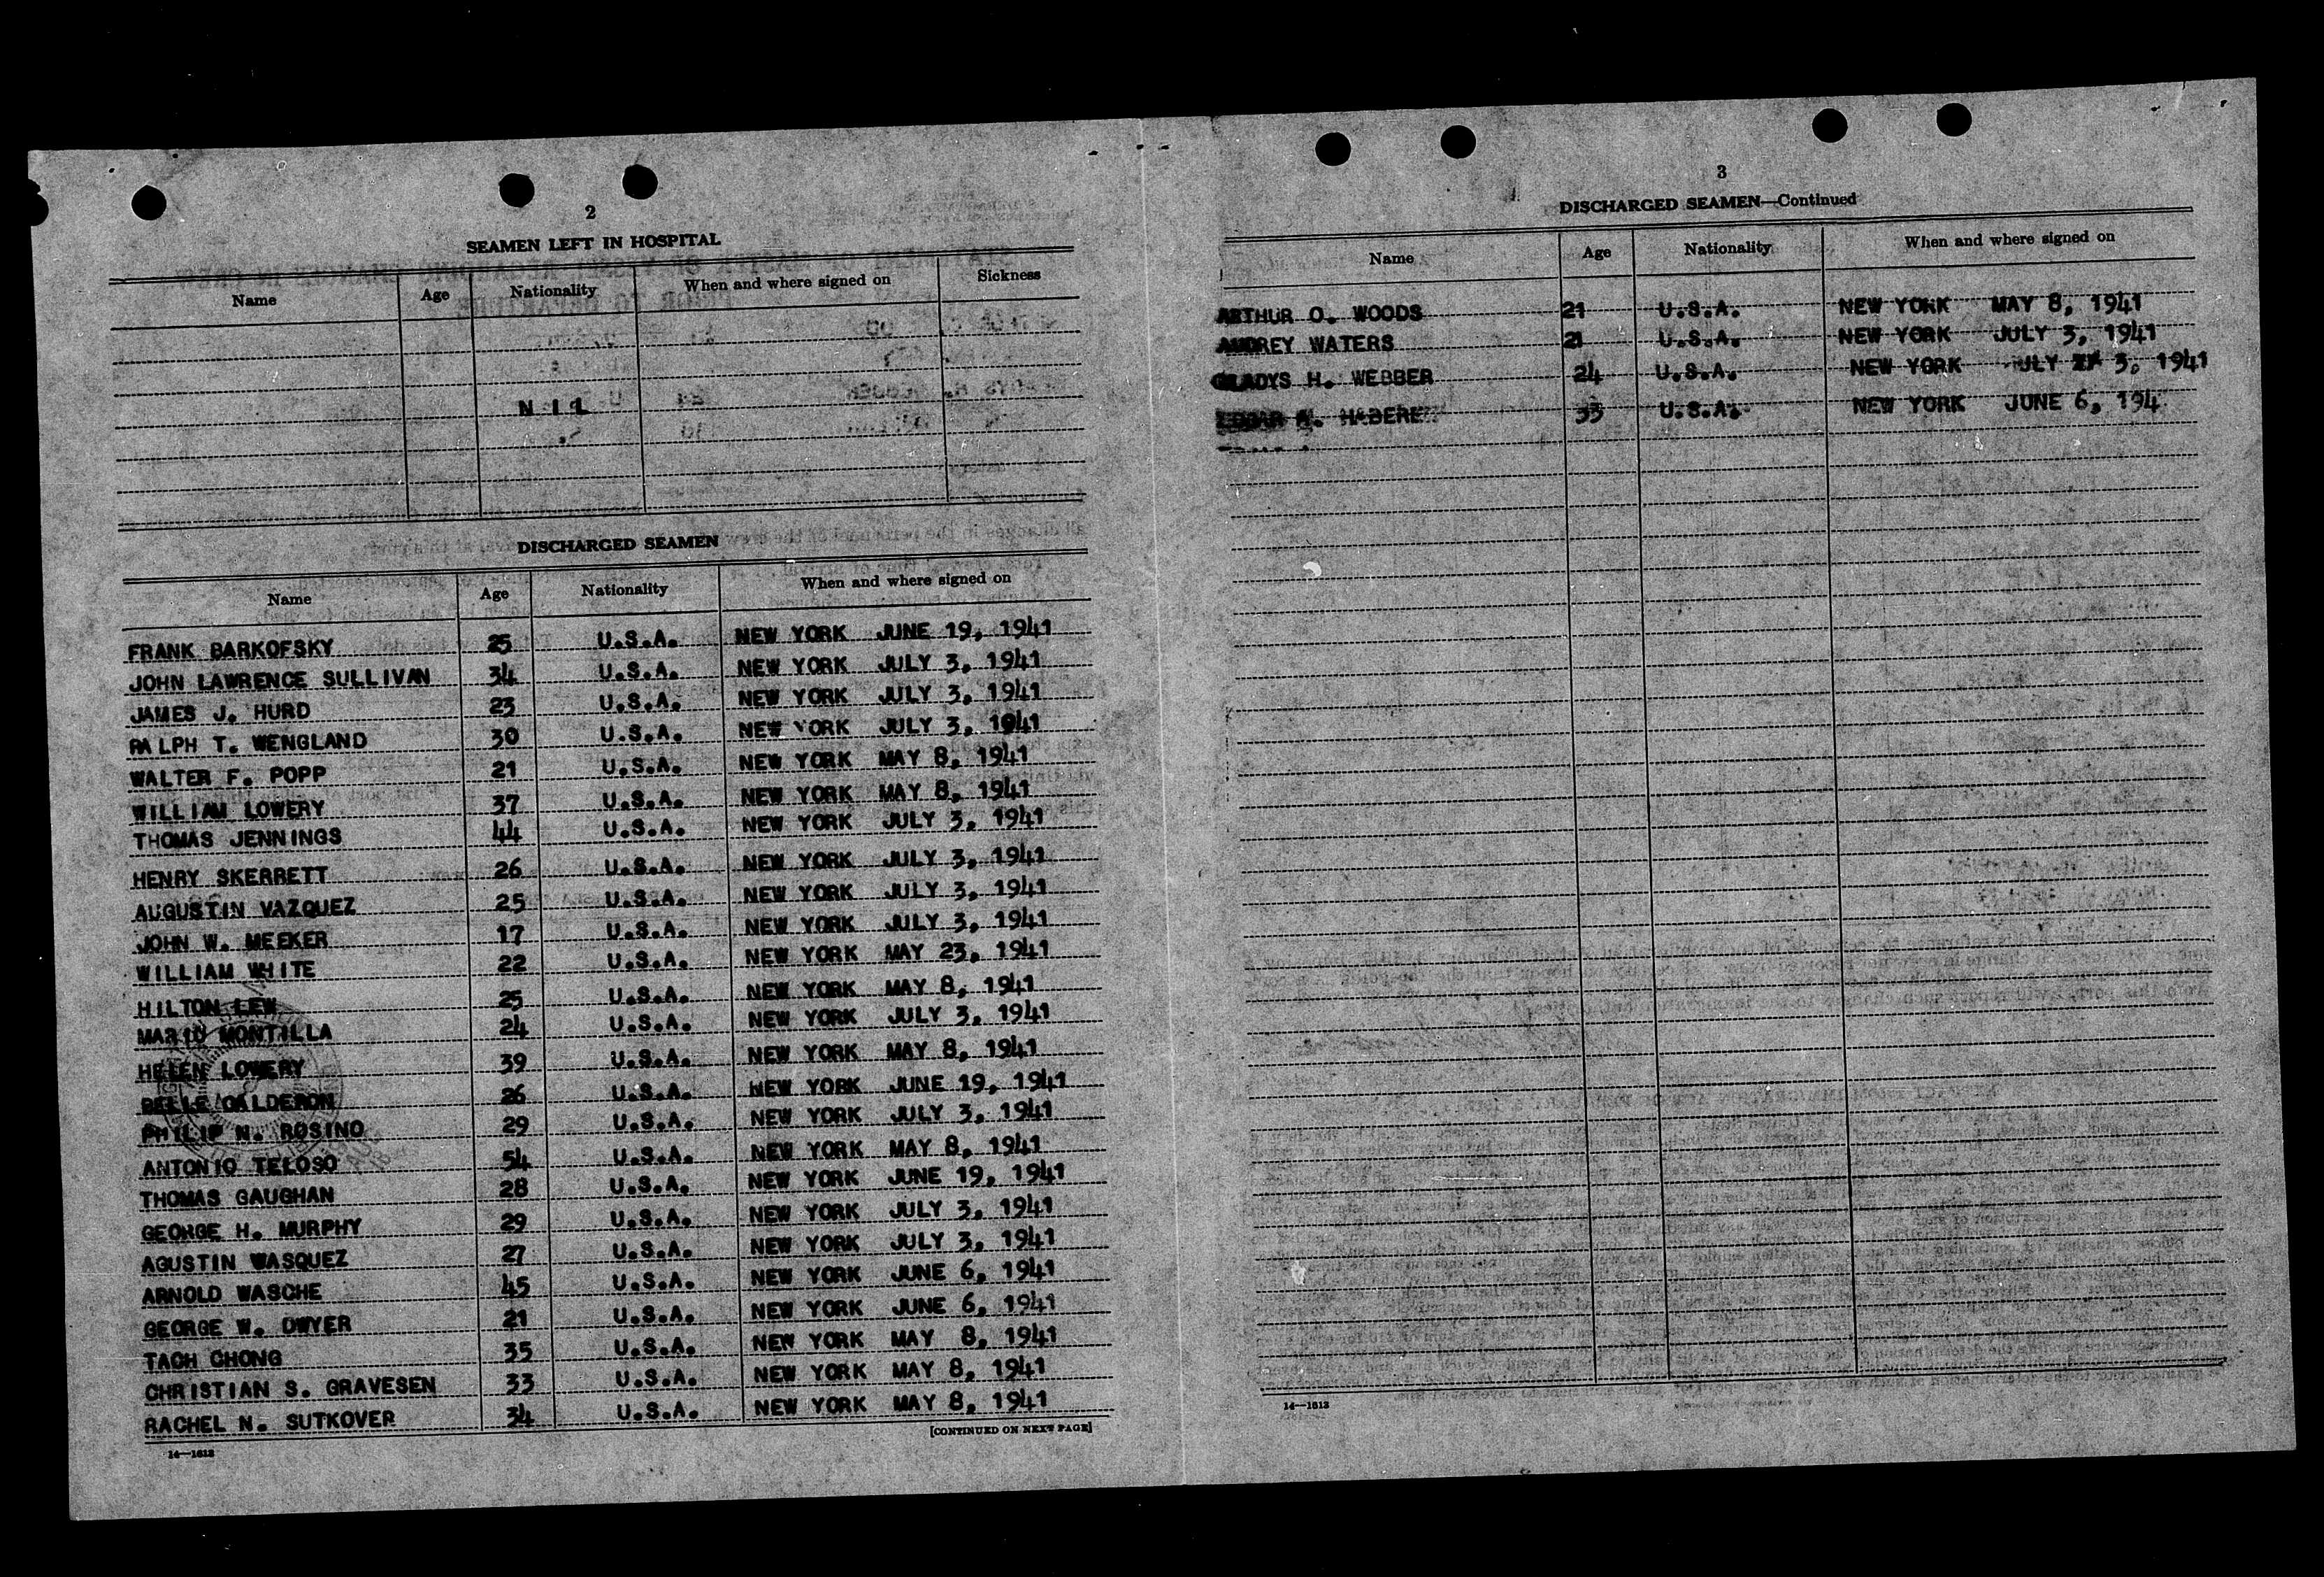 2
SEAMEN LEFT IN HOSPITAL
Name Age Nationality When and where signed on Sickness
N I L
DISCHARGED SEAMEN
Name Age Nationality When and where signed on
FRANK BARKOFSKY 25 U.S.A. NEW YORK JUNE 19, 1941
JOHN LAWRENCE SULLIVAN 34 U.S.A. NEW YORK JULY 3, 1941
JAMES J. HURD 23 U.S.A. NEW YORK JULY 3, 1941
RALPH T. WENGLAND 30 U.S.A. NEW YORK JULY 3, 1941
WALTER F. POPP 21 U.S.A. NEW YORK MAY 8, 1941
WILLIAM LOWERY 37 U.S.A. NEW YORK MAY 8, 1941
THOMAS JENNINGS 44 U.S.A. NEW YORK JULY 3, 1941
HENRY SKERRETT 26 U.S.A. NEW YORK JULY 3, 1941
AUGUSTIN VAZQUEZ 25 U.S.A. NEW YORK JULY 3, 1941
JOHN W. MEEKER 17 U.S.A. NEW YORK JULY 3, 1941
WILLIAM WHITE 22 U.S.A. NEW YORK MAY 23, 1941
HILTON LEW 25 U.S.A. NEW YORK MAY 8, 1941
MARIO MONTILLA 24 U.S.A. NEW YORK JULY 3, 1941
HELEN LOWERY 39 U.S.A. NEW YORK MAY 8, 1941
BELLE CALDERON 26 U.S.A. NEW YORK JUNE 19, 1941
PHILIP N. ROSINO 29 U.S.A. NEW YORK JULY 3, 1941
ANTONIO TELOSO 54 U.S.A. NEW YORK MAY 8, 1941
THOMAS GAUGHAN 28 U.S.A. NEW YORK JUNE 19, 1941
GEORGE H. MURPHY 29 U.S.A. NEW YORK JULY 3, 1941
AGUSTIN WASQUEZ 27 U.S.A. NEW YORK JULY 3, 1941
ARNOLD WASCHE 45 U.S.A. NEW YORK JUNE 6, 1941
GEORGE W. DWYER 21 U.S.A. NEW YORK JUNE 6, 1941
TACH CHONG 35 U.S.A. NEW YORK MAY 8, 1941
CHRISTIAN S. GRAVESEN 33 U.S.A. NEW YORK MAY 8, 1941
RACHEL N. SUTKOVER 34 U.S.A. NEW YORK MAY 8, 1941
[CONTINUED ON NEXT PAGE]
14—1613
3
DISCHARGED SEAMEN—Continued
Name Age Nationality When and where signed on
ARTHUR O. WOODS 21 U.S.A. NEW YORK MAY 8, 1941
AUDREY WATERS 21 U.S.A. NEW YORK JULY 3, 1941
GLADYS H. WEBBER 24 U.S.A. NEW YORK JULY 3, 1941
33 U.S.A. NEW YORK JUNE 6, 194
14—1613